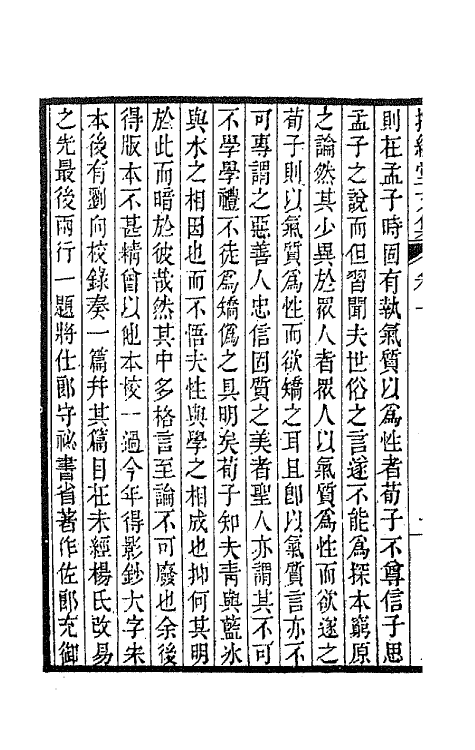 則在孟子時固有執氣質以為性者荀子不尊信子思
孟子之說而但習聞夫世俗之言遂不能為探本窮原
之論然其少異於眾人者眾人以氣質為性而欲遂之
荀子則以氣質為性而欲矯之耳且卽以氣質言亦不
可專謂之惡善人忠信固質之美者聖人亦謂其不可
不學學禮不徒為矯偽之具明矣荀子知夫青與藍冰
與水之相因也而不悟夫性與學之相成也抑何其明
於此而暗於彼哉然其中多格言至論不可廢也余後
得版本不甚精曾以他本校一過今年得影鈔大字宋
本後有劉向校錄奏一篇并其篇目在未經楊氏改易
之先最後兩行一題將仕郎守祕書省著作佐郎充御